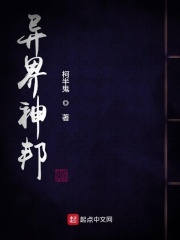 异界神邦
柯半鬼
◎著
起点中文网